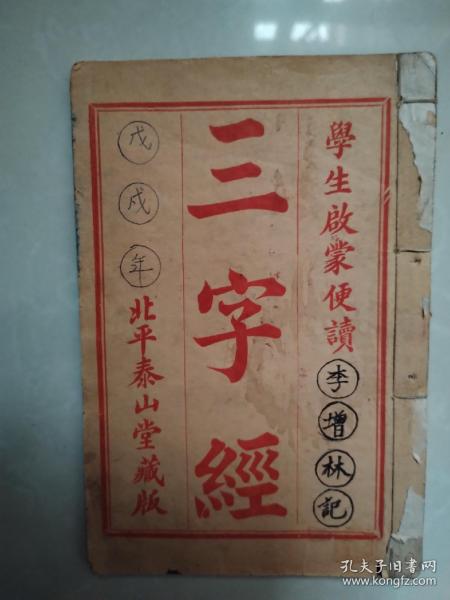 學生啟蒙便讀
李增林記
三字經
戊戌年
北平泰山堂藏版
孔夫子旧书网
www.kongfz.com